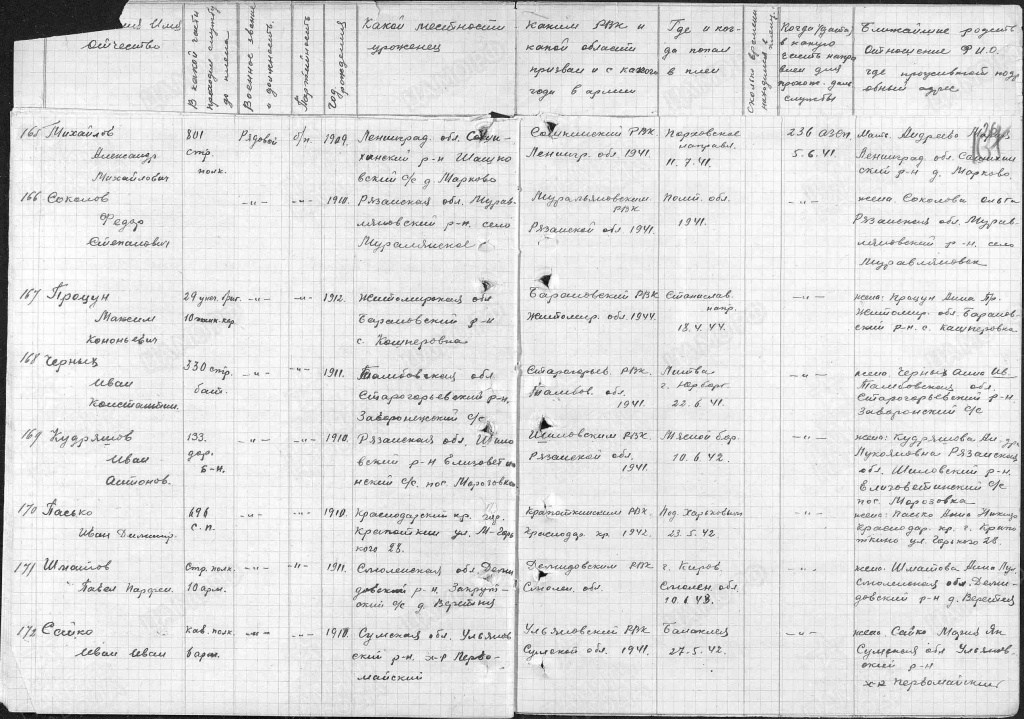 Имя
Отчество
В какой части
проходил службу
до плена
Военное звание
и должность
Партийность
Год
рождения
Какой местности
уроженец
Каким РВК и
какой области
призван и с какого
года в армии
Где и ког-
да попал
в плен
Сколько времени
находился в
плену
Когда (дата)
в какую
часть напр
влен для
прохож. дал.
службы
Ближайшие родств
Отношение Ф.И.О.
где проживают подр
обный адрес
165 Михайлов
Александр
Михайлович
801
стр.
полк.
Рядовой
б/п.
1909.
Ленинград. обл. Соши-
хинский р-н Шашко
вский с/с д. Марково
Сошихинский РВК
Ленингр. обл 1941.
Порховское
направл.
11.7.41.
236 АЗСП
5.6.41.
Мать. Андреева
Ленинград обл. Сошихин
ский р-н д. Марково.
166 Соколов
Федор
Степанович
-"-
-"-
1910.
Рязанская обл. Мурав-
ляновский р-н. село
Муравлянское
Муравляновским
РВК
Рязанской обл 1941.
Полт. обл.
1941.
-"-
жена Соколова Ольга
Рязанская обл. Мурав-
ляновский р-н. село
Муравляновск
167 Процун
Максим
Кононьевич
29 унич. бриг.
-"-
-"-
1912.
Житомирская обл
Барановский р-н
с. Кашперовка
Барановский РВК
Житомир. обл. 1944.
Станислав.
напр.
18.4.44.
-"-
жена: Процун Анна Пр.
Житомир. обл. Баранов-
ский р-н. с. Кашперовка
168 Черных
Иван
Константин.
330 стр.
бат.
-"-
-"-
1911.
Тамбовская обл.
Старогорьевский р-н.
Заворонежский с/с
Старогорьев. РВК.
Тамбов. обл.
1941.
Литва
г. Юрбарг.
22.6.41.
-"-
жена. Черных Анна Ив.
Тамбовская обл.
Старогорьевский р-н
Заворонский с/с
169 Кудряшов
Иван
Антонов.
133.
дор.
б-н.
-"-
-"-
1910.
Рязанская обл. Шило
вский р-н Елизовети
нский с/с. пос Морозовка
Шиловским РВК
Рязанской обл.
1941.
Мясной бор.
10.6.42.
-"-
жена: Кудряшова Ан.
Лукояновна Рязанская
обл. Шиловский р-н.
Елизоветинский с/с
пос. Морозовка
170 Пасько
Иван Димитр.
696
с.п.
-"-
-"-
1910.
Краснодарский кр. гор.
Крапоткин ул. М-Горь
кого 28.
Крапоткинским РВК.
Краснодар кр. 1942.
Под Харьковым
23.5.42.
-"-
жена: Пасько Анна
Краснодар. кр. г. Крапо
ткино ул. Горького 28.
171 Шматов
Павел Парфен.
Стр. полк.
10 арм.
-"-
-"-
1911.
Смоленская обл. Деми
довский р-н.
ский с/с д. Веретни
Демидовским РВК
Смолен. обл.
г. Киров.
Смолен. обл.
-"-
жена. Шматова Анна Лук
Смоленская обл. Деми-
довский р-н д. Веретни
172 Сайко
Иван Иван
Кав. полк.
6 арм.
-"-
-"-
1910.
Сумская обл. Ульянов
ский р-н. х-р Перво-
майский
Ульяновский РВК
Сумской обл. 1941.
Балаклея
27.5.42.
-"-
жена Сайко Мария Як
Сумская обл Ульянов-
ский р-н
х-р Первомайский